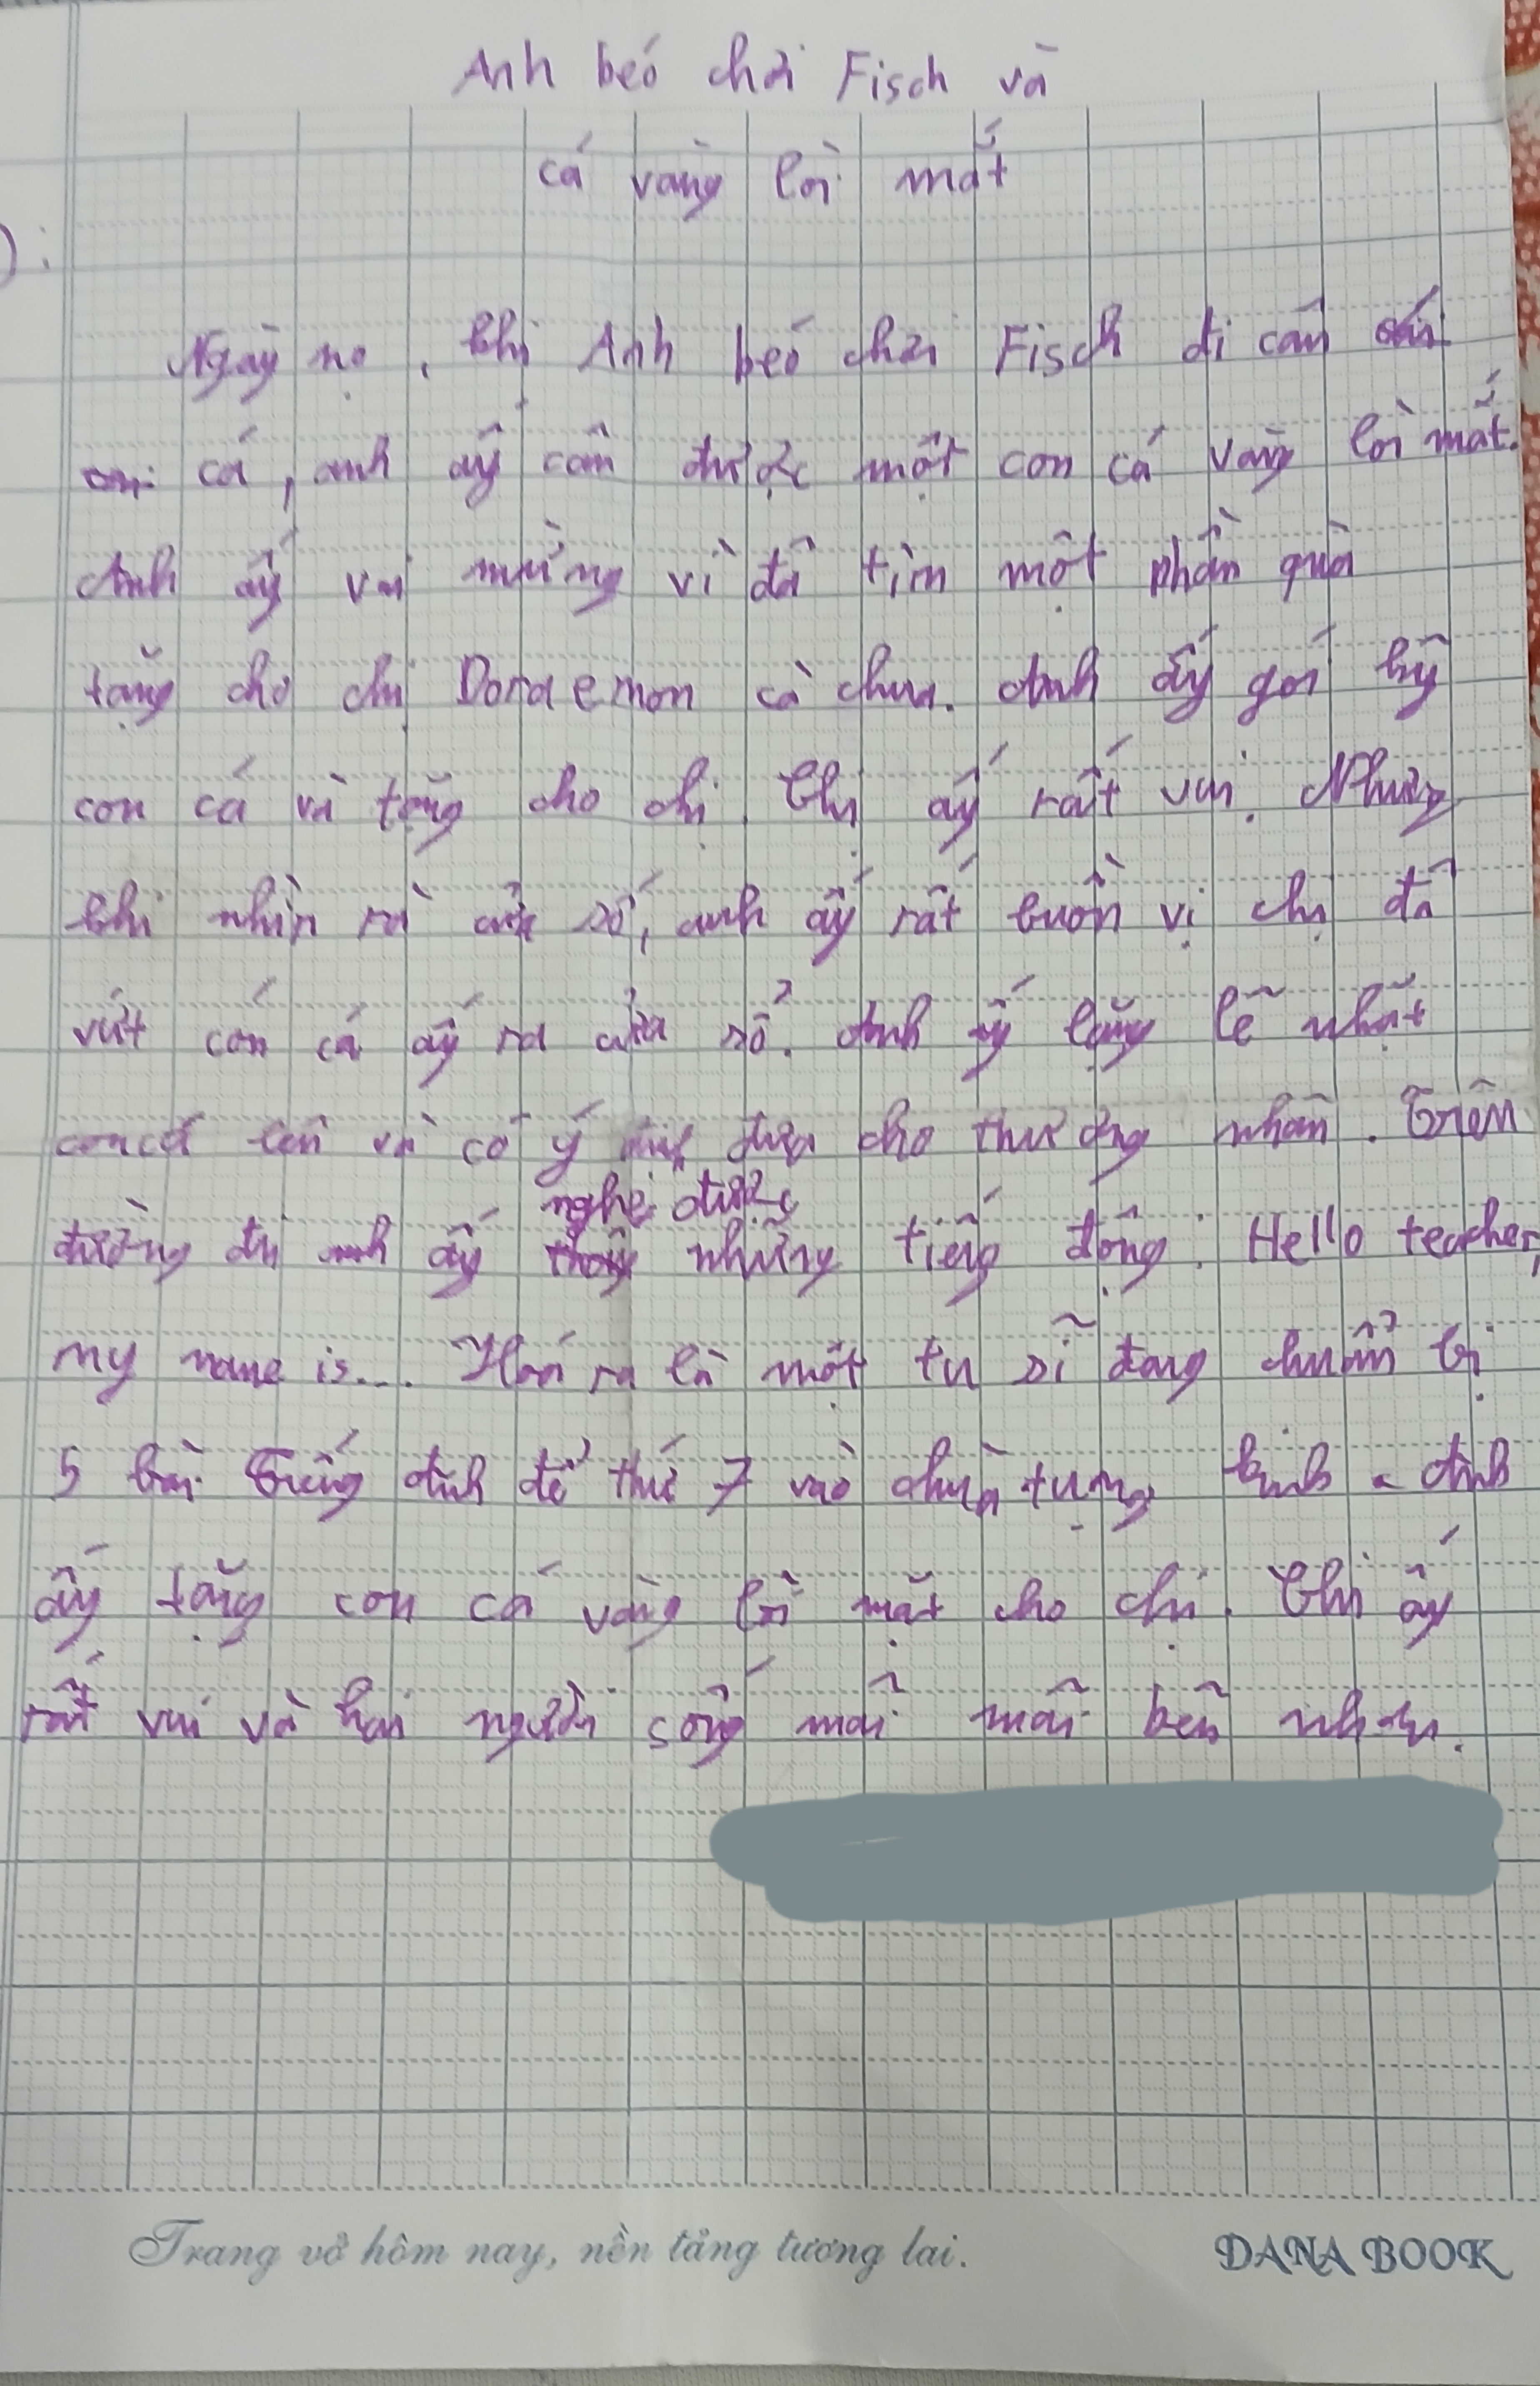 Anh béo chơi Fisch và
cá vàng lòi mắt
Ngày nọ, khi Anh béo chơi Fisch đi câu
cá, anh ấy câu được một con cá vàng lòi mắt.
Anh ấy vui mừng vì đã tìm một phần quà
tặng cho chị Doraemon cà chua. Anh ấy gói kỹ
con cá và tặng cho chị. Chị ấy rất vui. Nhưng
khi nhìn ra cửa sổ, anh ấy rất buồn vì chị đã
vứt con cá ấy ra cửa sổ. Anh ấy lặng lẽ nhặt
con cá lên và có ý định đưa cho thương nhân. Trên
nghe được
đường đi anh ấy thấy những tiếng động: Hello teacher,
my name is.... Hoá ra là một tu sĩ đang chuẩn bị
5 bài Tiếng Anh để thứ 7 vào chùa tụng kinh. Anh
ấy tặng con cá vàng lòi mắt cho chị. Chị ấy
rất vui và hai người sống mãi mãi bên nhau.
Trang vở hôm nay, nền tảng tương lai.
DANA BOOK